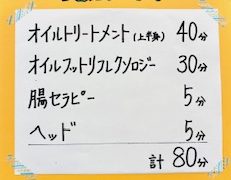 オイルトリートメント(上半身) 40分
オイルフットリフレクソロジー 30分
腸セラピー 5分
ヘッド 5分
計 80分